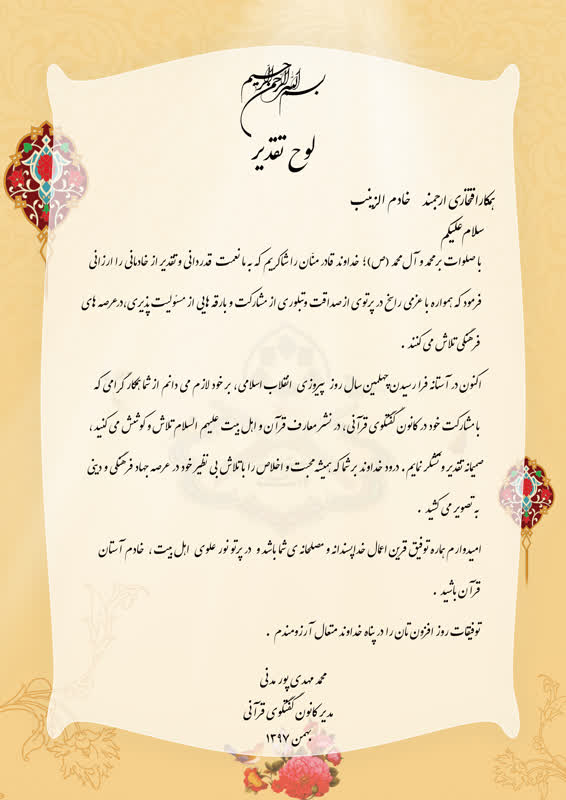 بسم الله الرحمن الرحیم
لوح تقدیر
همکار افتخاری ارجمند خادم الزینب
سلام علیکم
با صلوات بر محمد و آل محمد (ص)؛ خداوند قادر منّان را شاکریم که به ما نعمت قدردانی و تقدیر از خادمانی را ارزانی
فرمود که همواره با عزمی راسخ در پرتوی از صداقت و تبلوری از مشارکت و بارقه هایی از مسئولیت پذیری، در عرصه های
فرهنگی تلاش می کنند .
اکنون در آستانه فرا رسیدن چهلمین سال روز پیروزی انقلاب اسلامی، بر خود لازم می دانم از شما همکار گرامی که
با مشارکت خود در کانون گفتگوی قرآنی، در نشر معارف قرآن و اهل بیت علیهم السلام تلاش و کوشش می کنید،
صمیمانه تقدیر و تشکر نمایم . درود خداوند بر شما که همیشه محبت و اخلاص را با تلاش بی نظیر خود در عرصه جهاد فرهنگی و دینی
به تصویر می کشید .
امیدوارم هماره توفیق قرین اعمال خداپسندانه و مصلحانه ی شما باشد و در پرتو نور علوی اهل بیت ، خادم آستان
قرآن باشید .
توفیقات روز افزون تان را در پناه خداوند متعال آرزومندم .
محمد مهدی پور مدنی
مدیر کانون گفتگوی قرآنی
بهمن ۱۳۹۷